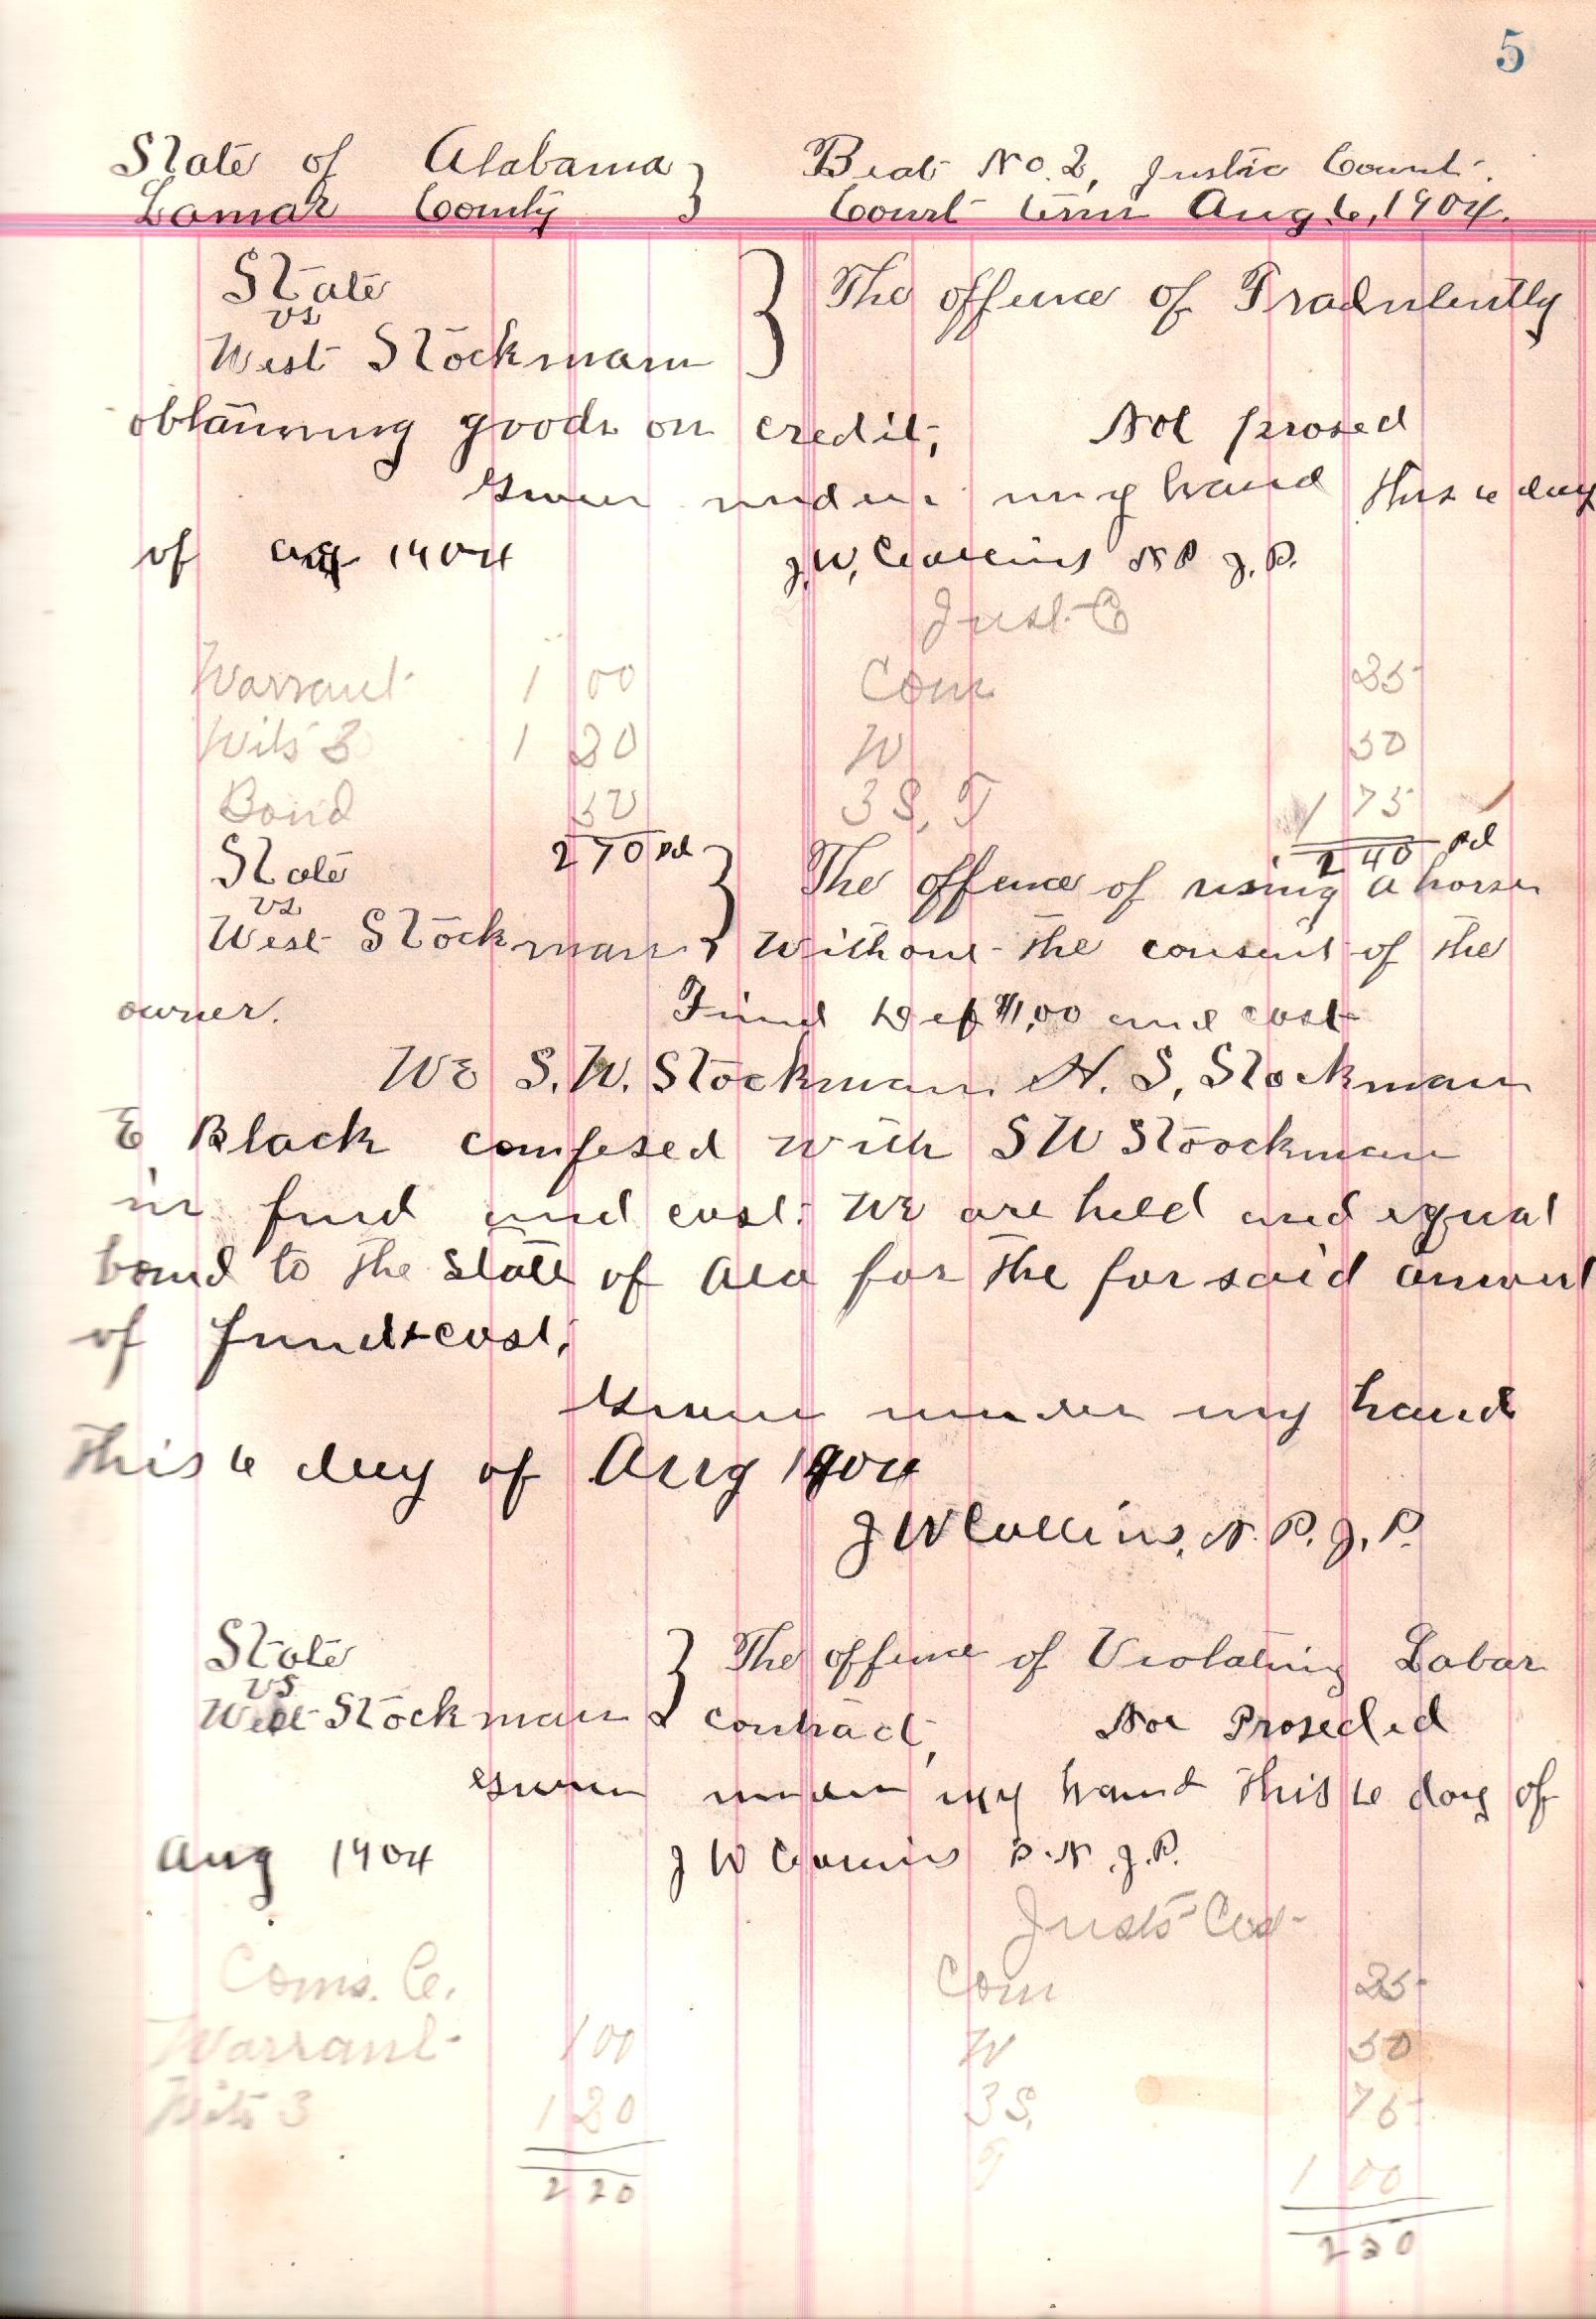 5
State of Alabama } Beat No. 2, Justic Court.
Lamar County } Court term Aug 6, 1904.
State } The offence of Fradulently
vs
West Stockman
obtaining goods on credit, Not prosed
Given under my hand this 6 day
of Aug 1904 J. W. Collins N P J. P.
Just. C
Warrant 1 00 Com
Wits 3 1 20 W 50
Bond 50 3 S, T 1 75
2 70 pd 2 40 pd
State } The offence of using a horse
vs
West Stockman } without the consent of the
owner. Fined Def $1,00 and cost
We S. W. Stockman H. S, Stockman
E Black confesed with S W Stoockman
in find and cost. We are held and equal
bound to the State of Ala for the forsaid amount
of find & cost,
Given under my hand
This 6 day of Aug 1904
J W Collins, N. P. J. P.
State } The offence of Violating Labar
vs
West Stockman } contract, Not Proseded
Given under my hand this 6 day of
Aug 1904 J W Collins P. N. J. P.
Justs Cost
Coms. C. Com 25
Warrant 1 00 W 50
Wits 3 1 20 3 S, 75
T 1 00
2 20
2 50